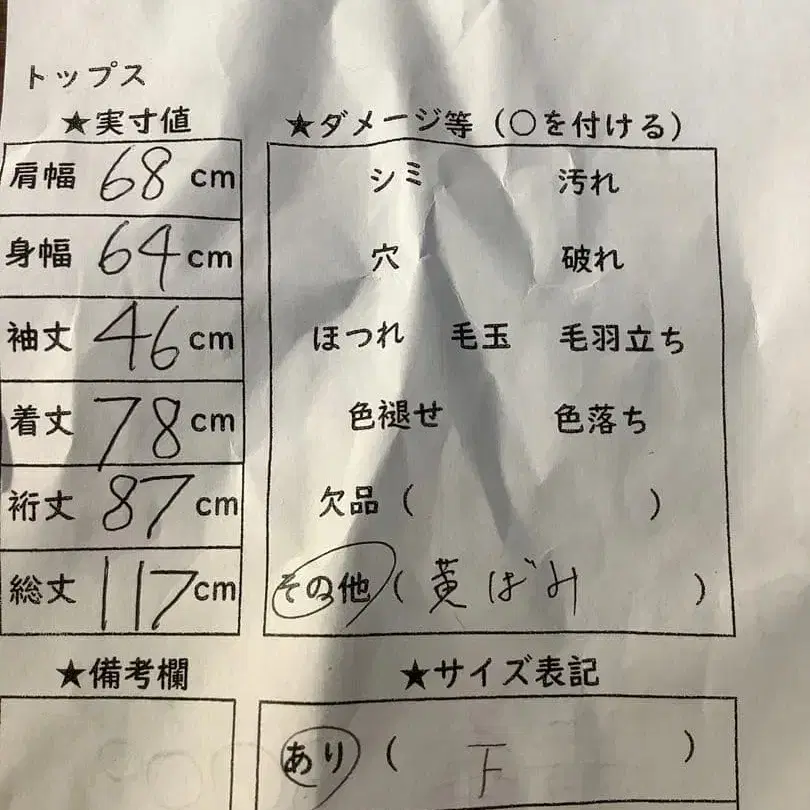 トップス
★実寸値
肩幅 68 cm
身幅 64 cm
袖丈 46 cm
着丈 78 cm
裄丈 87 cm
総丈 117 cm
★ダメージ等（○を付ける）
シミ 汚れ
穴 破れ
ほつれ 毛玉 毛羽立ち
色褪せ 色落ち
欠品（ ）
その他（黄ばみ ）
★備考欄
★サイズ表記
あり（ F ）